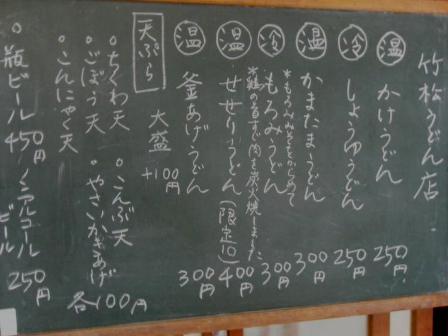 竹松うどん店
温 かけうどん 250円
冷 しょうゆうどん 250円
温 かまたまうどん 300円
冷 もろみうどん 300円
温 せせりうどん (限定10) 400円
温 釜あげうどん 300円
大盛 +100円
天ぷら
。ちくわ天
。ごぼう天
。こんにゃく天
。こんぶ天
。やさいかきあげ
各100円
。瓶ビール 450円
ノンアルコールビール 250円